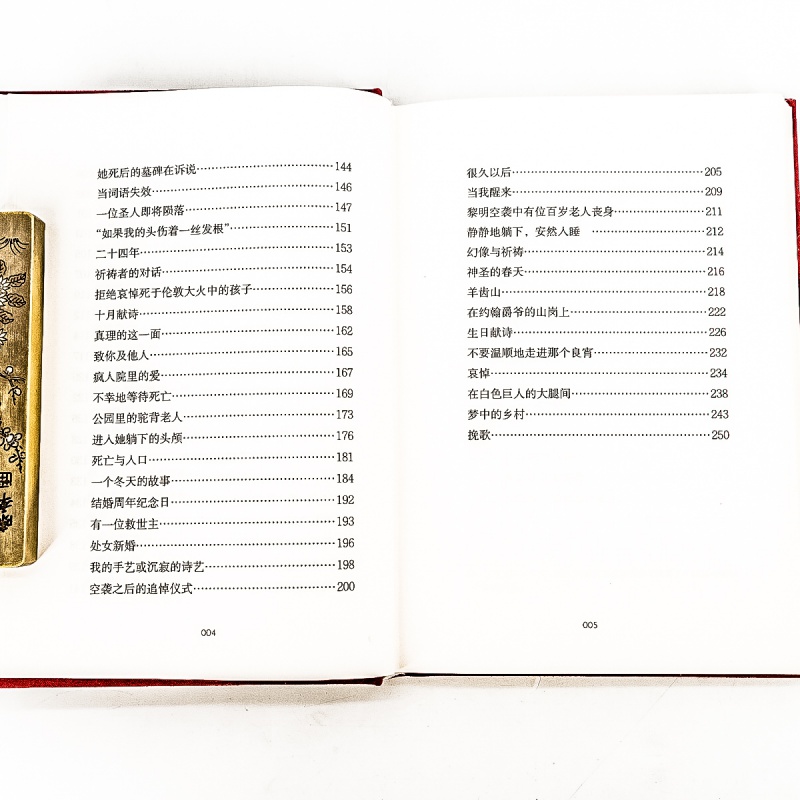 她死后的墓碑在诉说……144
当词语失效……146
一位圣人即将陨落……147
“如果我的头伤着一丝发根”……151
二十四年……153
祈祷者的对话……154
拒绝哀悼死于伦敦大火中的孩子……156
十月献诗……158
真理的这一面……162
致你及他人……165
疯人院里的爱……167
不幸地等待死亡……169
公园里的驼背老人……173
进入她躺下的头颅……176
死亡与入口……181
一个冬天的故事……184
结婚周年纪念日……192
有一位救世主……193
处女新婚……196
我的手艺或沉寂的诗艺……198
空袭之后的追悼仪式……200
004
很久以后……205
当我醒来……209
黎明空袭中有位百岁老人丧身……211
静静地躺下，安然入睡 ……212
幻像与祈祷……214
神圣的春天……216
羊齿山……218
在约翰爵爷的山岗上……222
生日献诗……226
不要温顺地走进那个良宵……232
哀悼……234
在白色巨人的大腿间……238
梦中的乡村……243
挽歌……250
005